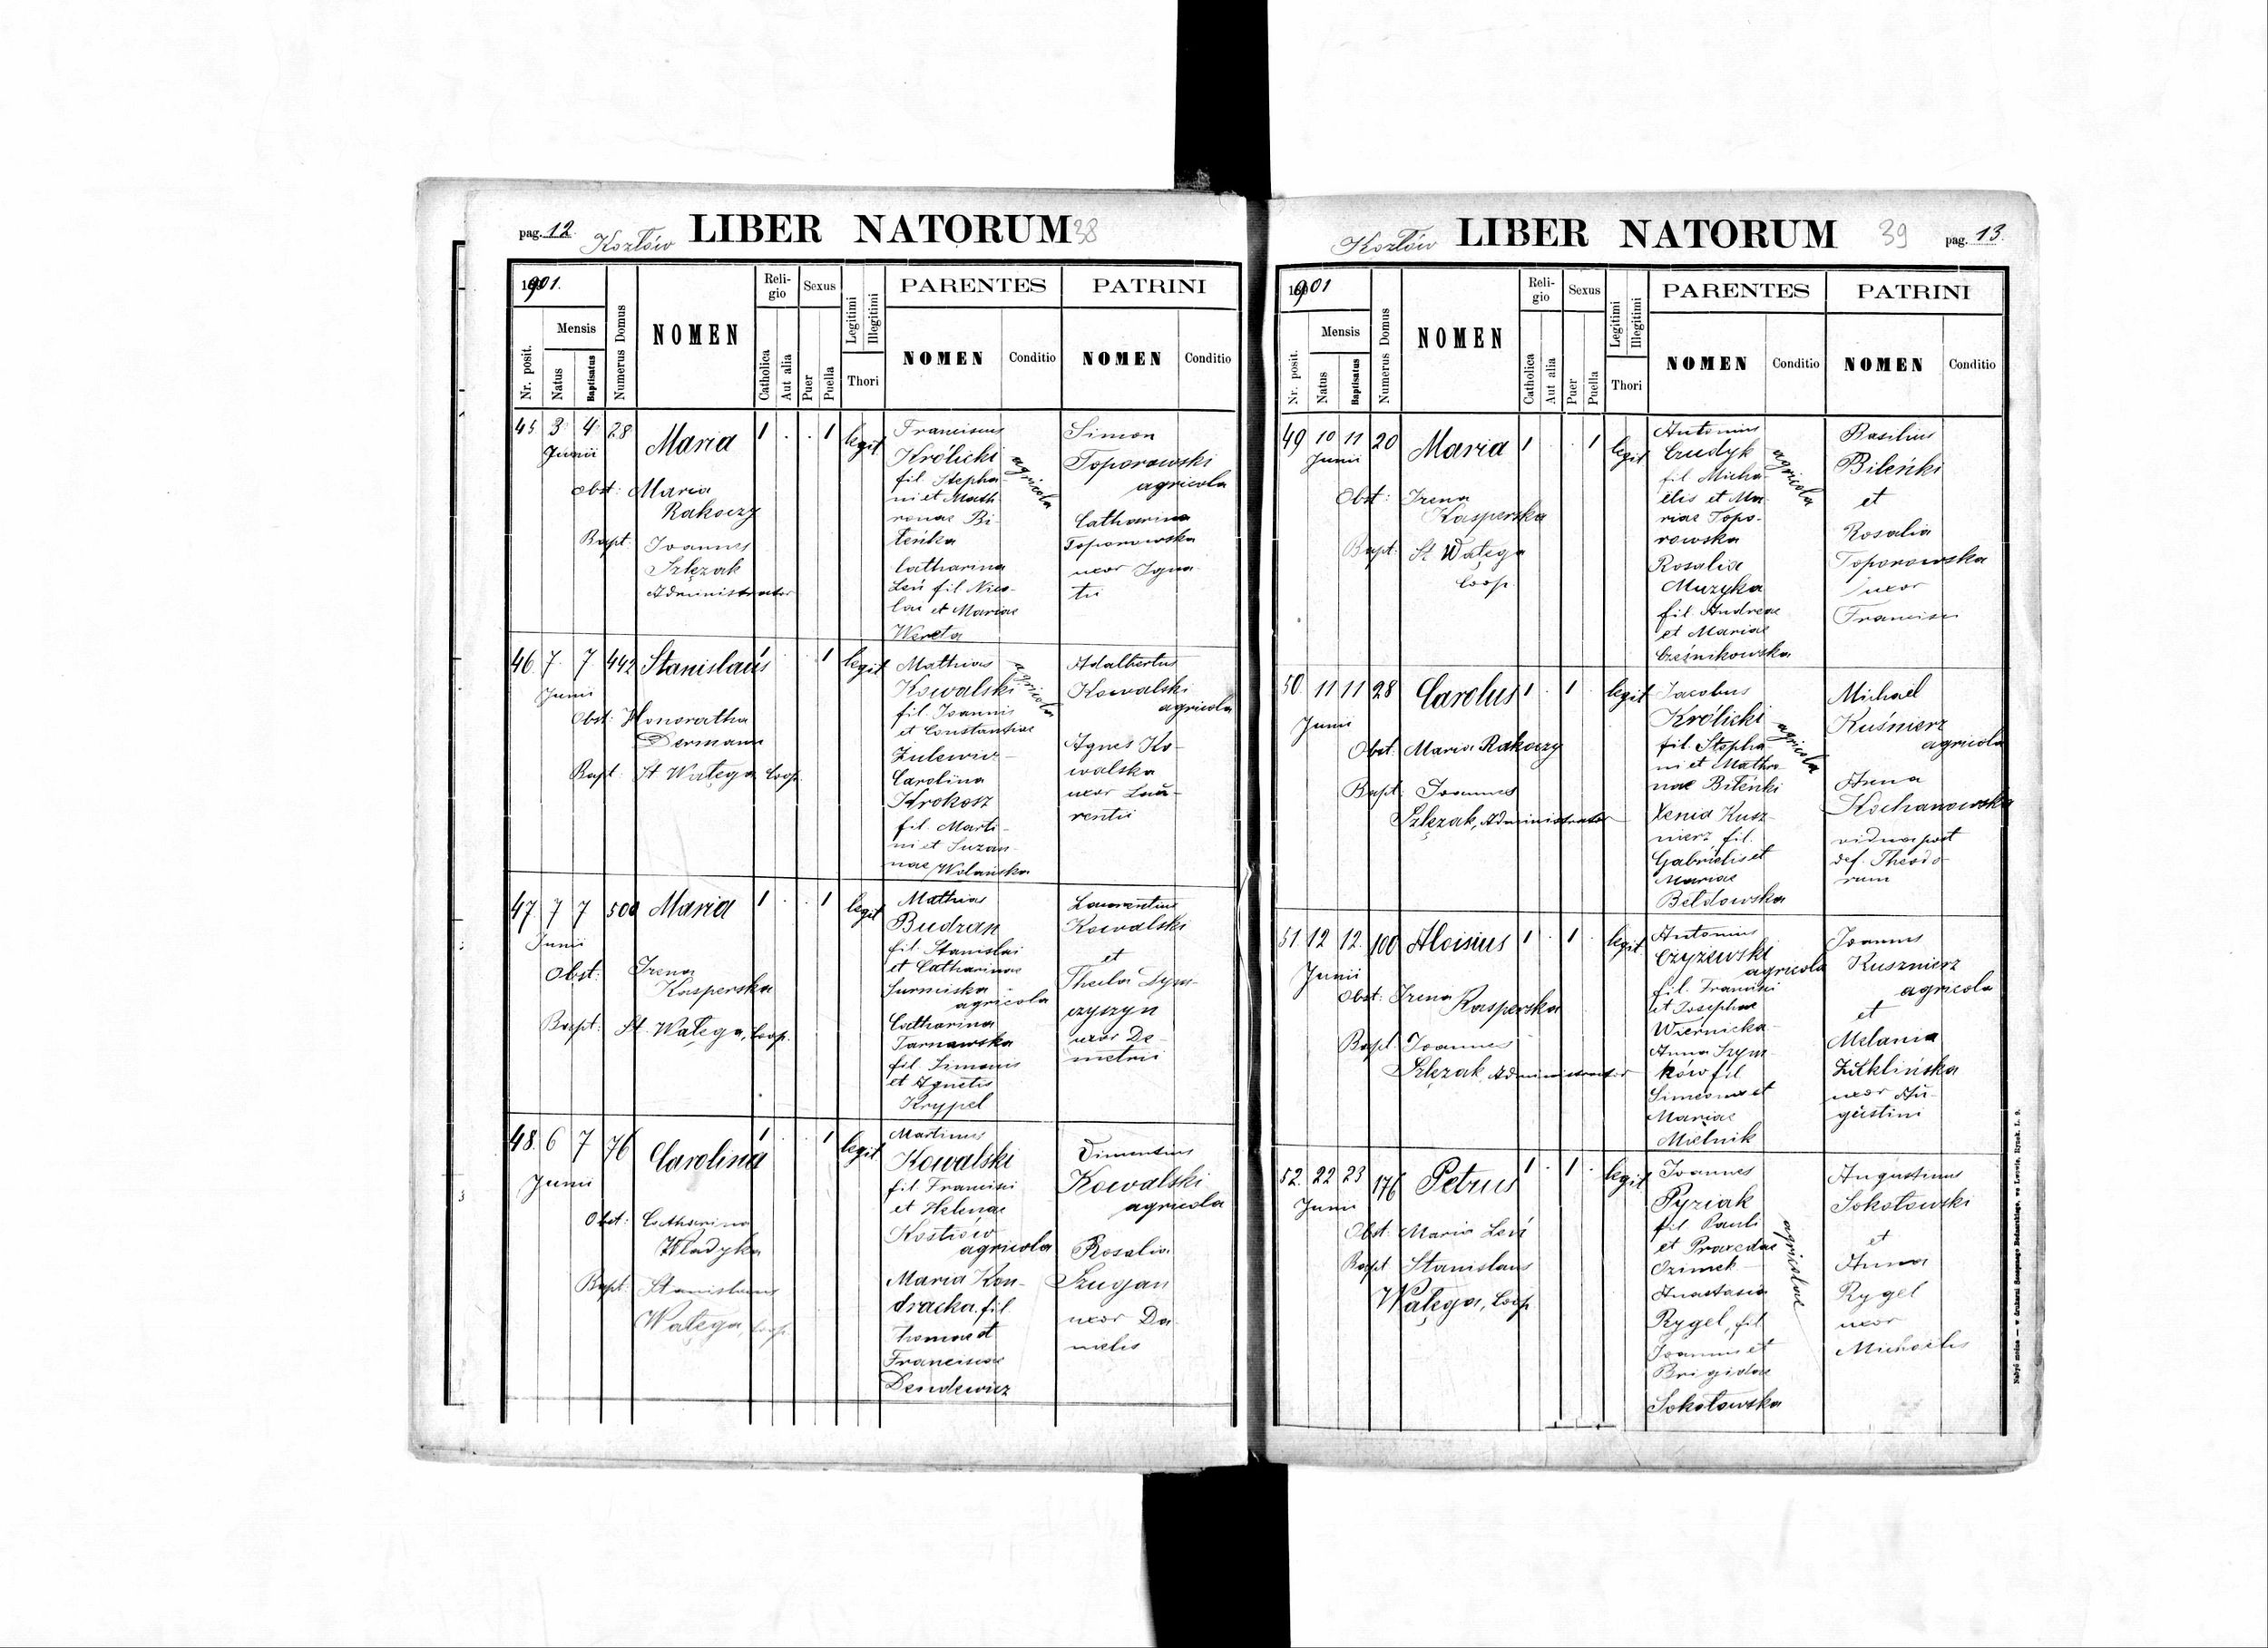 pag. 12.
Kozłów
LIBER NATORUM
38
1901.
Nr. posit.
Mensis
Natus
Baptisatus
Numerus Domus
NOMEN
Religio
Catholica
Aut alia
Sexus
Puer
Puella
Legitimi
Illegitimi
Thori
PARENTES
NOMEN
Conditio
PATRINI
NOMEN
Conditio
45 3 4 28 Maria 1 . . 1 legit
Junii
Obst: Maria
Rakoczy
Bapt. Joannes
Szlęzak
Administrator
Franciscus
Królicki
fil. Stepha-
ni et Math
ronae Bi-
leńka
agricola
Catharina
Leń fil Nico-
lai et Mariae
Wereta
Simon
Toporowski
agricola
Catharina
Toporowska
uxor Igna
tii
46 7 7 442 Stanislaus 1 legit
Junii
Obst: Honoratha
Dermann
Bapt: St Wałęga Coop.
Mathias
Kowalski
agricola
fil. Joannis
et Constantiae
Zulewicz
Carolina
Krokosz
fil. Marti-
ni et Suzan-
nae Wolańska
Adalbertus
Kowalski
agricola
Agnes Ko-
walska
uxor Lau-
rentii
47 7 7 500 Maria 1 . . 1 legit
Junii
Obst: Irena
Kasperska
Bapt: St. Wałęga, Coop.
Mathias
Budzan
fil. Stanislai
et Catharinae
Surmiska
agricola
Catharina
Tarnawska
fil Simonis
et Agnetis
Krypel
Laurentius
Kowalski
et
Thecla Sym-
czyszyn
uxor De-
metrii
48 6 7 76 Carolina 1 . . 1 legit
Junii
Obst: Catharina
Władyka
Bapt: Stanislaus
Wałęga, Coop.
Martinus
Kowalski
fil. Francisci
et Helenae
Kostiów
agricola
Maria Kon-
dracka fil
Thomae et
Franciscae
Dendewicz
Kowalski
agricola
Rosalia
Szugan
uxor Da
nielis
Kozłów
LIBER NATORUM
39
pag. 13.
1901
Nr. posit.
Mensis
Natus
Baptisatus
Numerus Domus
NOMEN
Religio
Catholica
Aut alia
Sexus
Puer
Puella
Legitimi
Illegitimi
Thori
PARENTES
NOMEN
Conditio
PATRINI
NOMEN
Conditio
49 10 11 20 Maria 1 . 1 legit
Junii
Obst: Irena
Kasperska
Bapt: St Wałęga
Coop.
Antonius
Czudyk
fil Micha-
elis et Ma-
riae Topo-
rowska
agricola
Rosalia
Muzyka
fil Andreae
et Mariae
Cześnikowska
Basilius
Bileńki
et
Rosalia
Toporowska
uxor
Francisci
50. 11 11 28 Carolus 1 . 1 . legit
Junii
Obst. Maria Rakoczy
Bapt: Joannes
Szlęzak, Administrator
Jacobus
Królicki
fil. Stepha-
ni et Mathro
nae Bileńki
agricola
Xenia Kusz-
nierz fil.
Gabrielis et
Mariae
Beldowska
Michael
Kuśnierz
agricola
Anna
Kochanowska
vidua post
def. Theodo-
rum
51. 12 12. 100 Aloisius 1 . 1 . legit
Junii
Obst: Irena Kasperska
Bapt Joannes
Szlęzak, Administrator
Antonius
Czyżewski
agricola
fil. Francisci
et Josephae
Wiernicka
Anna Szym
ków fil
Simeonis et
Mariae
Mielnik
Joannes
Kusznierz
agricola
et
Melania
Zuklińska
uxor Au-
gustini
52. 22 23 176 Petrus 1 . 1 . legit
Junii
Obst: Maria Leń
Bapt Stanislaus
Wałęga, Coop
Joannes
Pyziak
fil Pauli
et Praxedae
Ozimek
agricolae
Anastasia
Rygel, fil
Joannis et
Brigidae
Sokołowska
Augustinus
Sokołowski
et
Anna
Rygel
uxor
Michaelis